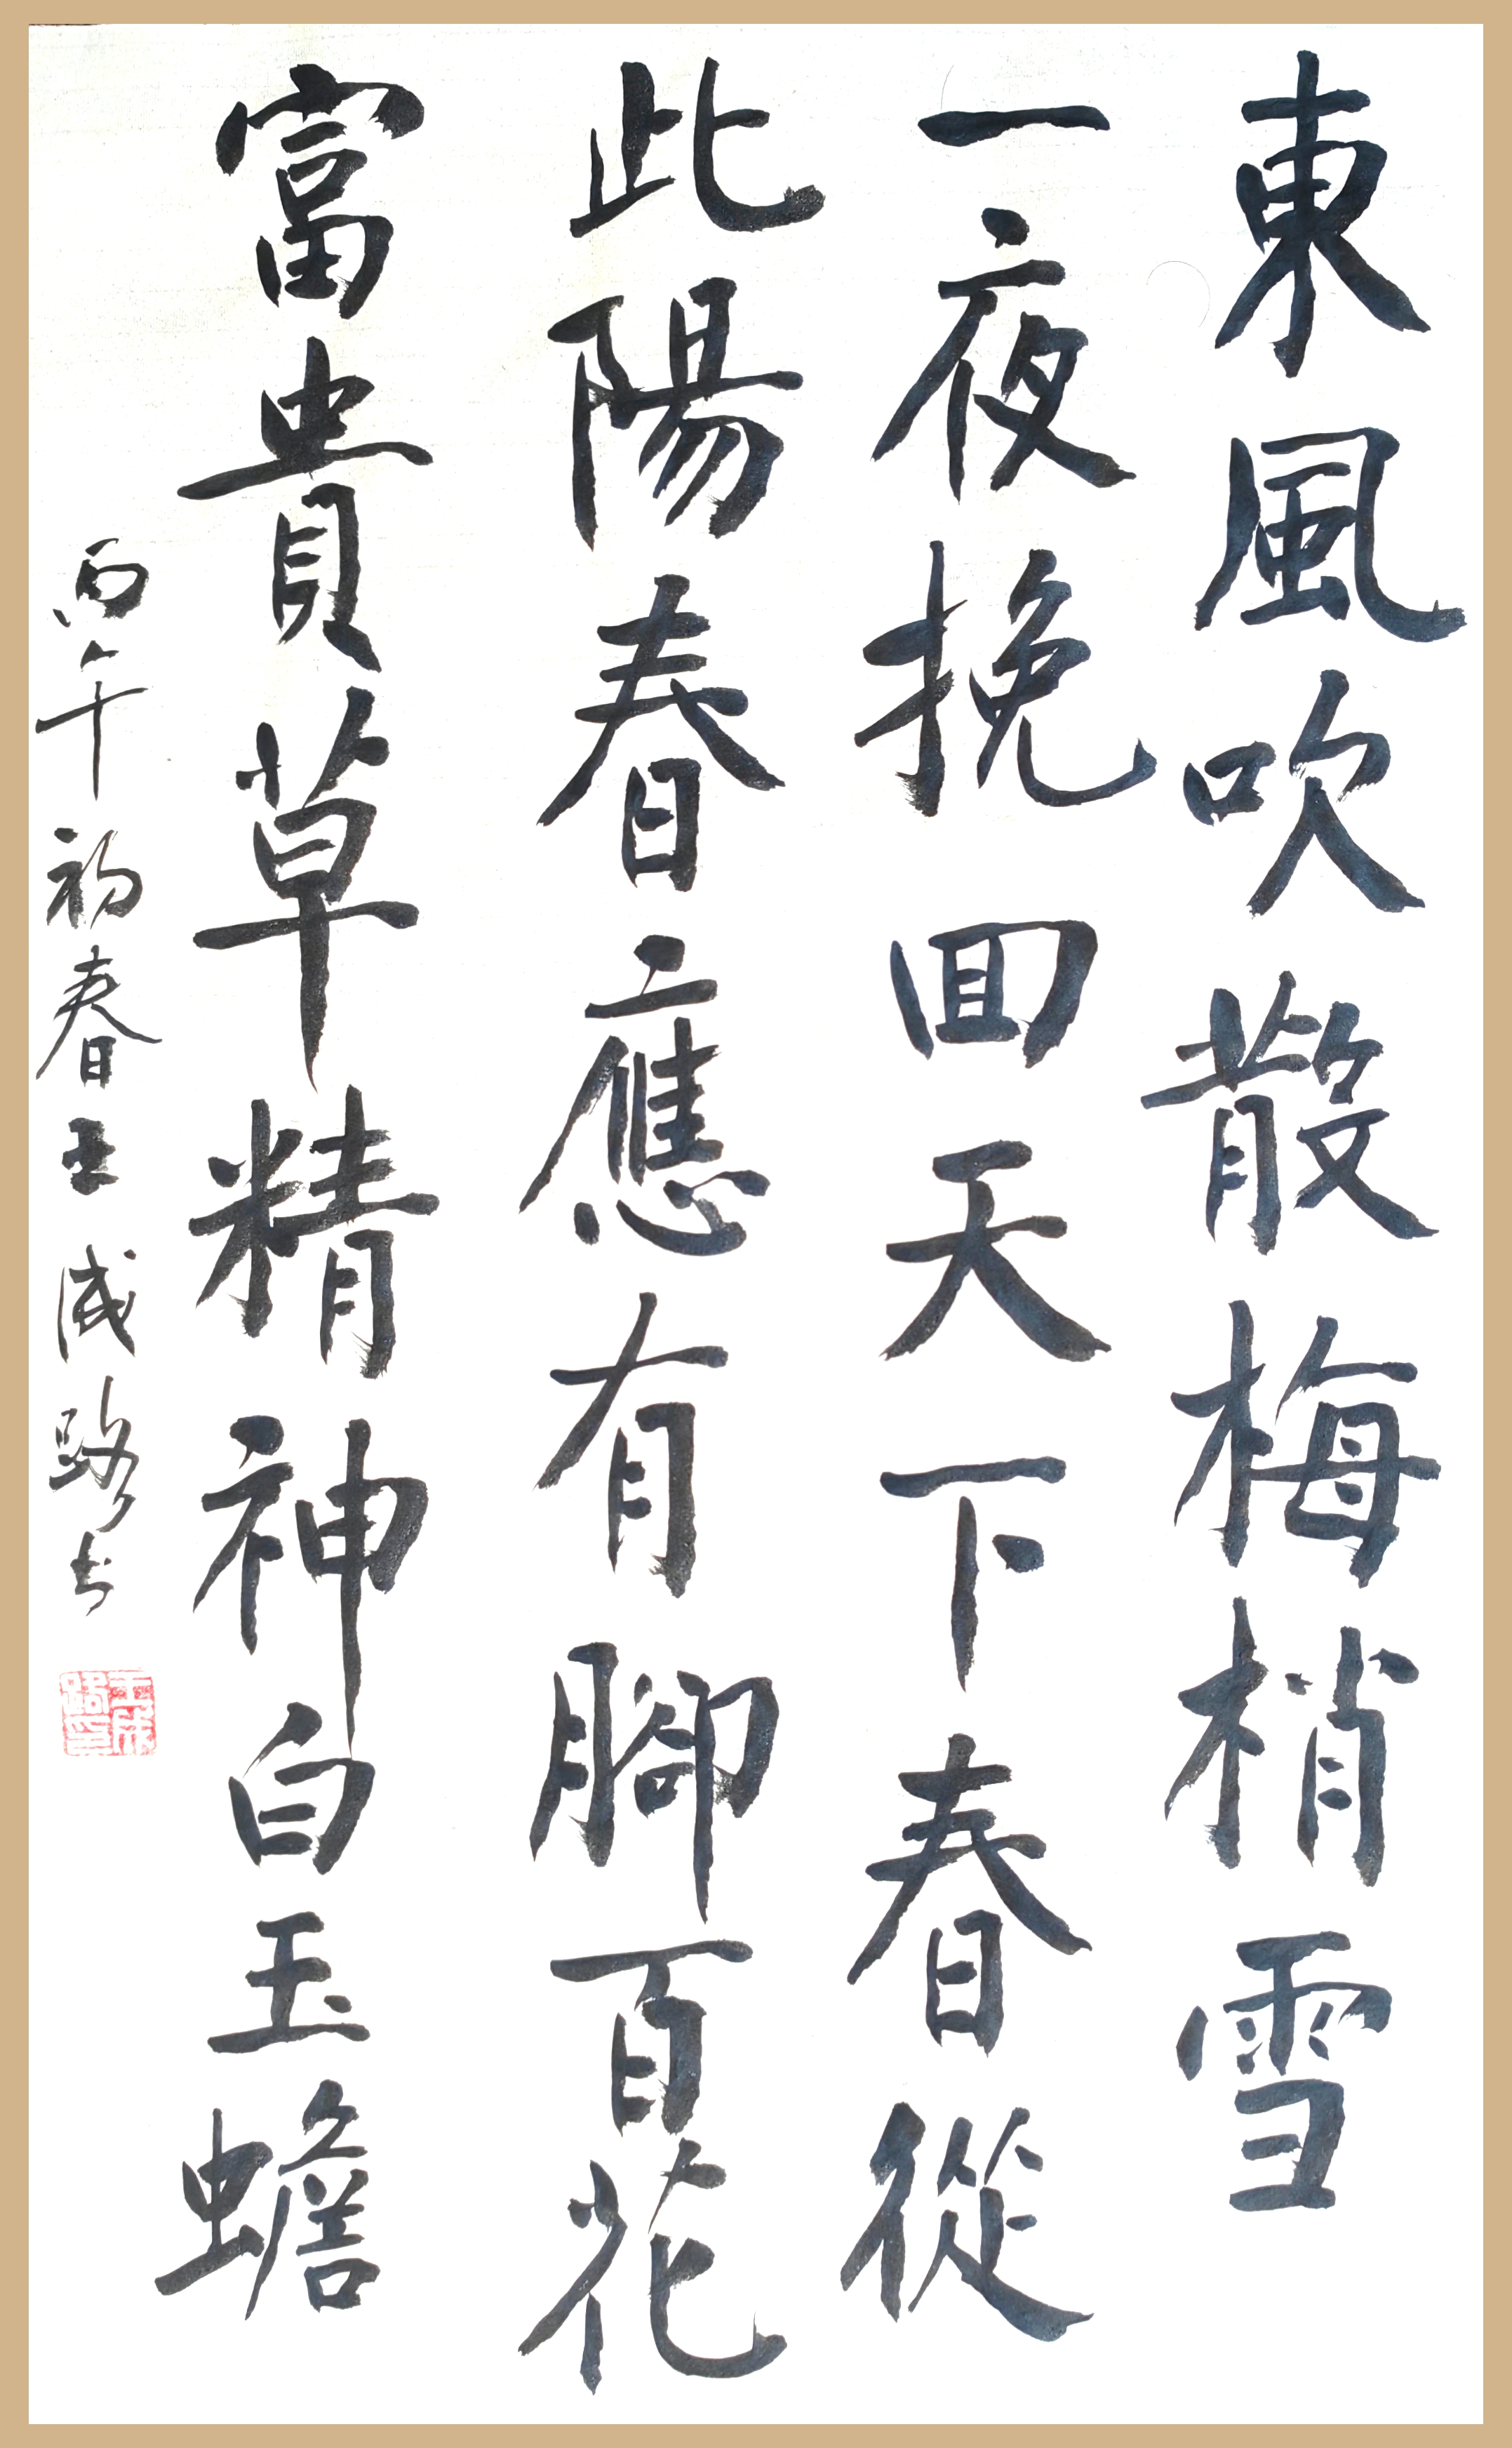 東風吹散梅梢雪
一夜挽回天下春從
此陽春應有腳百花
富貴草精神白玉蟾
丙午初春王成路書
王成路印